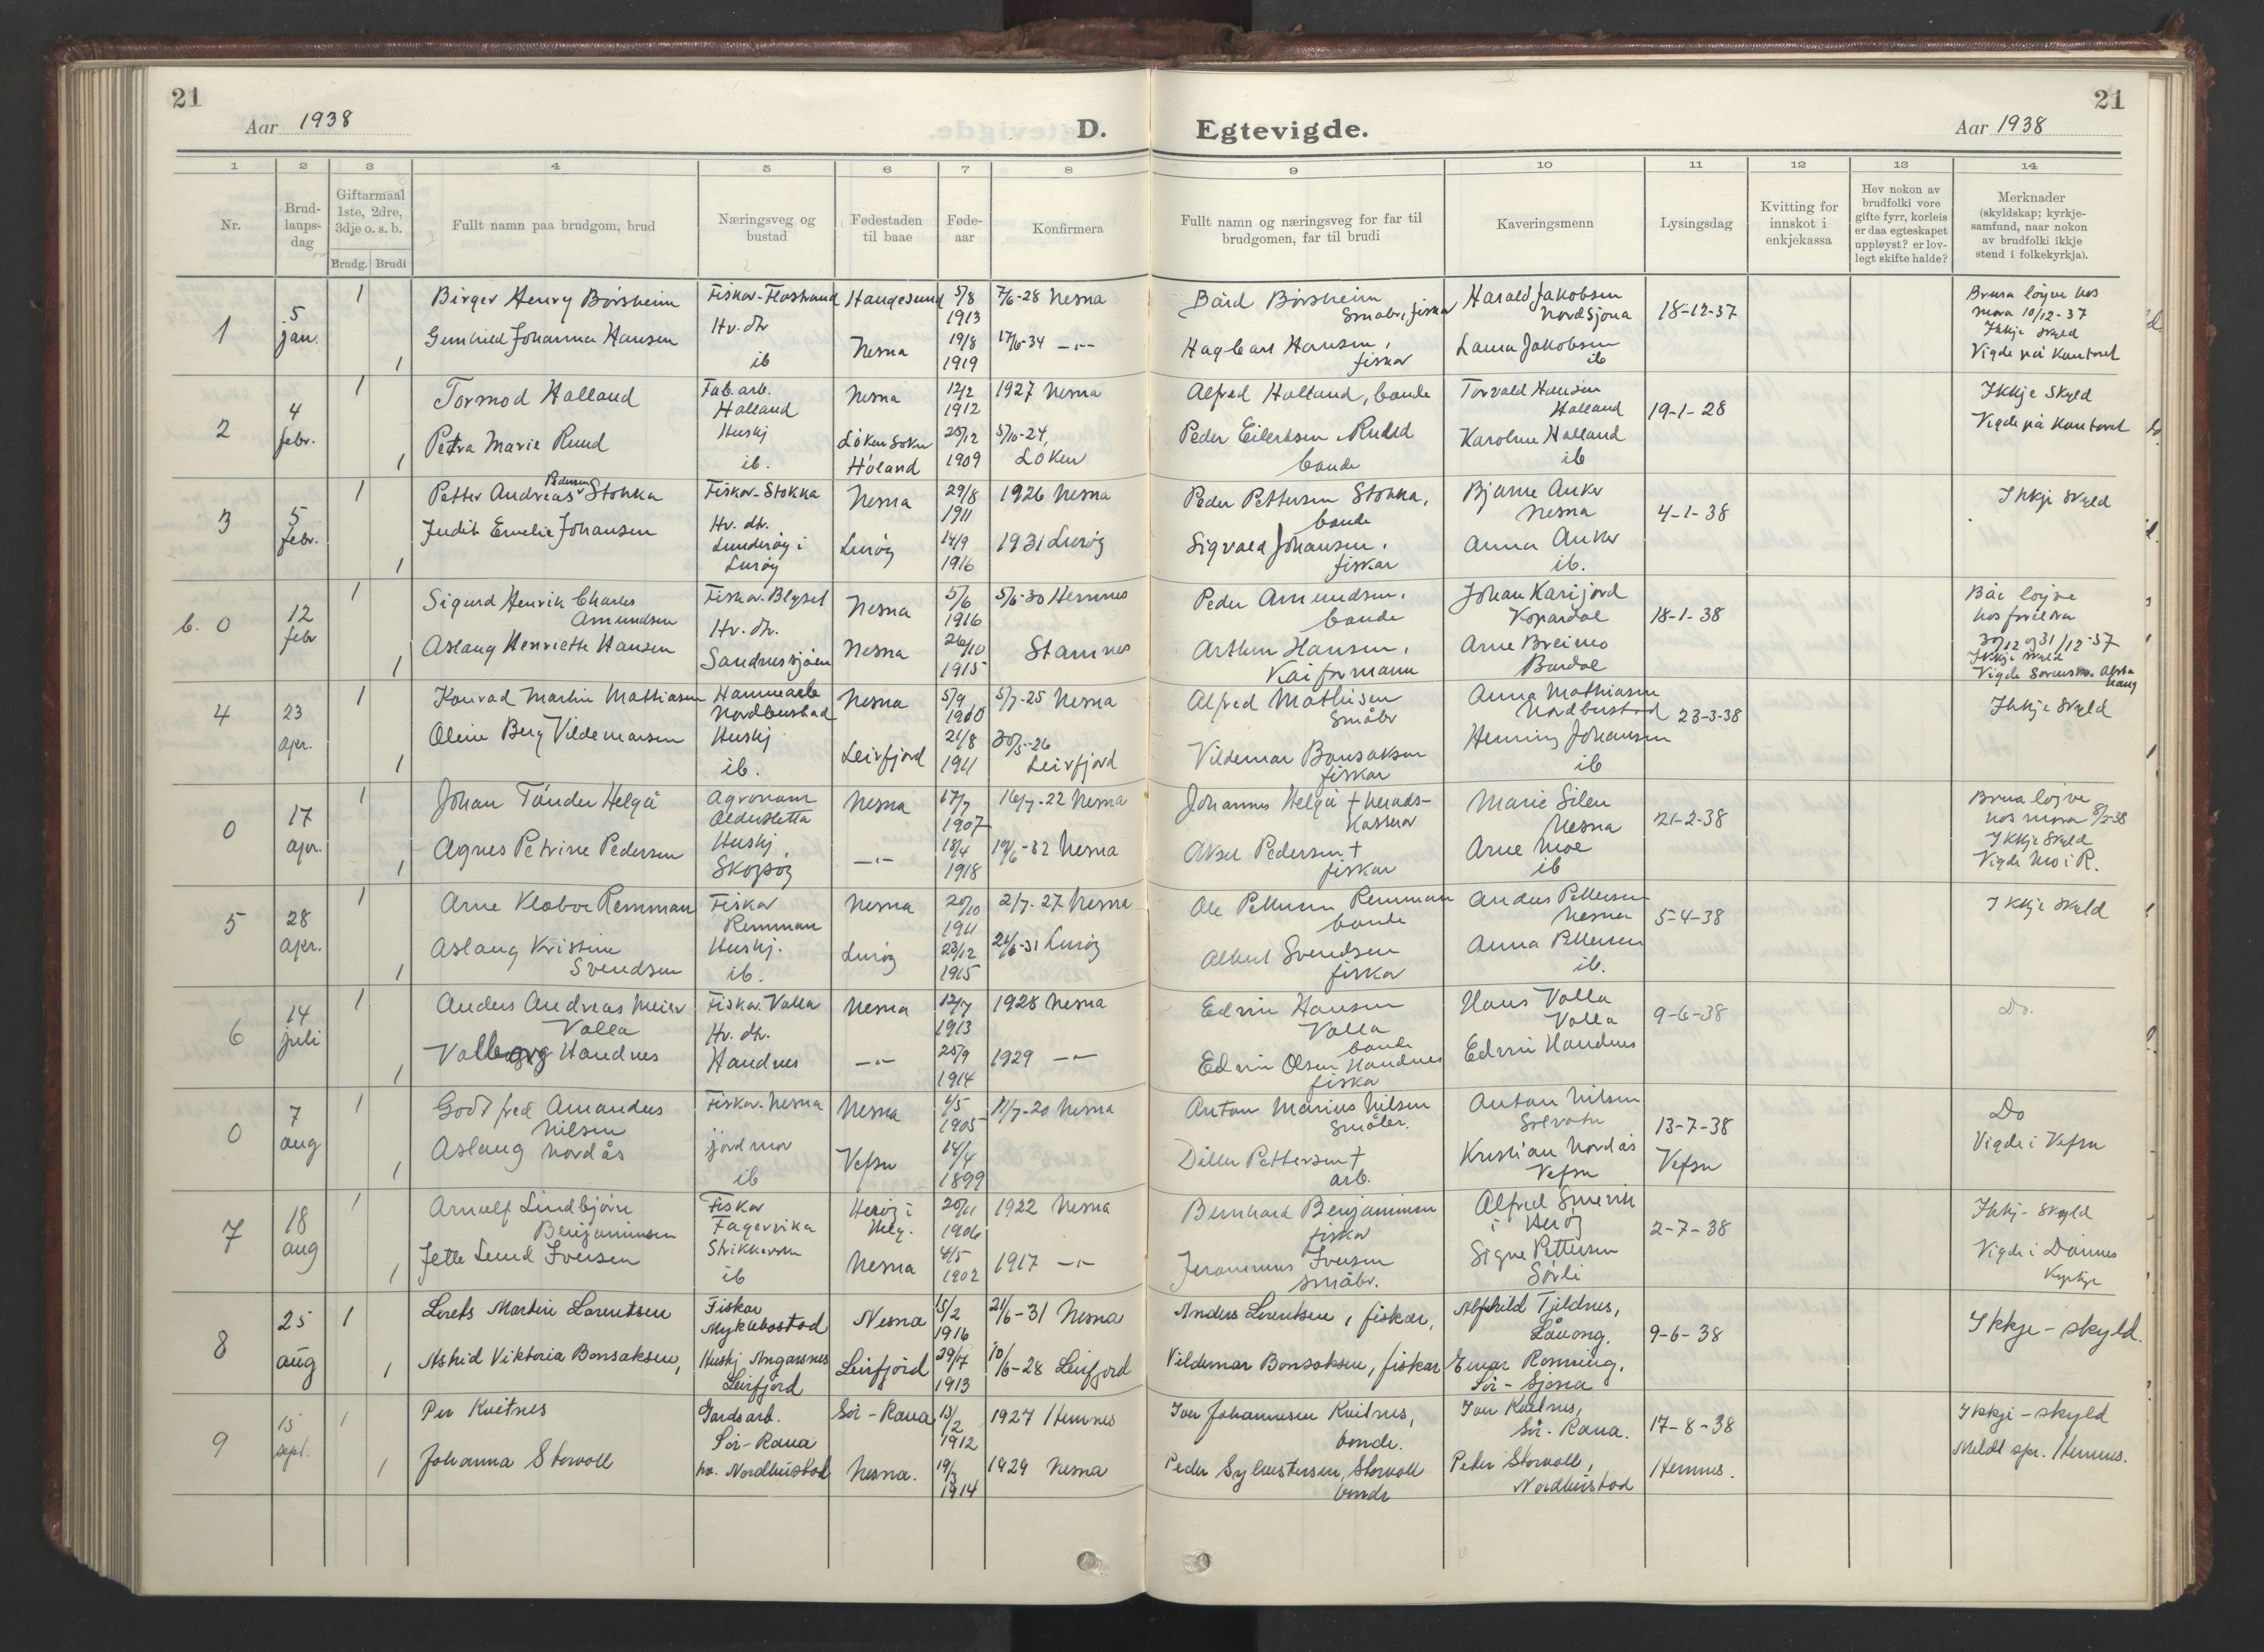 21
Aar 1938
D.
Egtevigde.
Aar 1938
21
1 2 3 4 5 6 7 8 9 10 11 12 13 14
Nr.
Brud-
laups-
dag
Giftarmaal
1ste, 2dre,
3dje o. s. b.
Brudg. Brudi
Fullt namn paa brudgom, brud
Næringsveg og
bustad
Fødestaden
til baae
Føde-
aar
Konfirmera
Fullt namn og næringsveg for far til
brudgomen, far til brudi
Kaveringsmenn
Lysingsdag
Kvitting for
innskot i
enkjekassa
Hev nokon av
brudfolki vore
gifte fyrr, korleis
er daa egteskapet
uppløyst? er lov-
legt skifte halde?
Merknader
(skyldskap; kyrkje-
samfund, naar nokon
av brudfolki ikkje
stend i folkekyrkja).
1
5
jan.
1
1
Birger Henry Börsheim
Gunhild Johanna Hansen
Fiskar-Flostrand
Hv. dtr
ib
Haugesund
Nesna
5/8
1913
19/8
1919
7/6-28 Nesna
17/6-34 -"-
Bård Börsheim
Småbr, fiskar
Hagbart Hansen,
fiskar
Harald Jakobsen
Nordsjona
Laura Jakobsen
ib
18-12-37
Brura löyve hos
mora 10/12-37
Ikkje skyld
Vigde på kontoret
2
4
febr.
1
1
Tormod Halland
Petra Marie Ruud
Fab. arb.
Halland
Huskj
ib.
Nesna
Löken sokn
Höland
12/2
1912
25/12
1909
1927 Nesna
5/10-24,
Löken
Alfred Halland, bonde
Peder Eilertsen Ruud
bonde
Torvald Hansen
Halland
Karoline Halland
ib
19-1-28
Ikkje skyld
Vigde på kontoret
3
5
febr.
1
1
Petter Andreas Pedersen Stokka
Judith Emelie Johansen
Fiskar-Stokka
Hv. dtr.
Lunderöy i
Luröy
Nesna
Luröy
29/8
1911
14/9
1916
1926 Nesna
1931 Luröy
Peder Pettersen Stokka,
bonde
Sigvald Johansen,
fiskar
Bjarne Anker
Nesna
Anna Anker
ib.
4-1-38
Ikkje skyld
b. 0
12
febr
1
1
Sigurd Henrik Charles
Amundsen
Aslaug Henriette Hansen
Fiskar-Blyset
Hv. dtr.
Sandnessjöen
Nesna
Nesna
5/6
1916
26/10
1915
5/6-30 Hemnes
Stamnes
Peder Amundsen,
bonde
Arthur Hansen,
Kaiformann
Johan Karijord
Kopardal
Arne Breimo
Bardal
18-1-38
Båe löyve
hos foreldra
30/12 og 31/12-37
Ikkje skyld
4
23
apr.
1
1
Konrad Martin Mathiasen
Oline Berg Vildemarsen
Hamnearb
Nordbustad
Huskj
ib.
Nesna
Leirfjord
5/9
1910
21/8
1911
5/7-25 Nesna
30/5-26
Leirfjord
Alfred Mathisen
Småbr
Vildemar Bonsaksen
fiskar
Anna Mathiasen
Nordbustad
Henning Johansen
ib
23-3-38
Ikkje skyld
0
17
apr.
1
1
Johan Tönder Helgå
Agnes Petrine Pedersen
Agronom
Huskj
Skogsöy
Nesna
-"-
17/7
1907
18/4
1918
16/7-22 Nesna
19/6-32 Nesna
Johannes Helgå † herads-
kasserar
Aksel Pedersen †
fiskar
Marie Silen
Nesna
Arne Moe
ib
21-2-38
Brura löyve
hos mora 8/2-38
Ikkje skyld
Vigde Mo i R.
5
28
apr.
1
1
Arne Klæboe Remman
Aslaug Kristine
Svendsen
Fiskar
Remman
Huskj.
ib.
Nesna
Luröy
20/10
1911
23/12
1915
2/7-27 Nesna
21/6-31 Luröy
Ole Pettersen Remman
bonde
Albert Svendsen
fiskar
Anders Pettersen
Nesna
Anna Pettersen
ib.
5-4-38
Ikkje skyld
6
14
juli
1
1
Anders Andreas Meier
Valla
Valborg Handnes
Fiskar. Valla
Hv. dtr.
Handnes
Nesna
-"-
12/7
1913
25/9
1914
1928 Nesna
1929 -"-
Edvin Hansen
Valla
bonde
Edvin Olsen Handnes
fiskar
Hans Valla
Valla
Edvin Handnes
9-6-38
Do.
0
7
aug
1
1
Godtfred Amandus
Nilsen
Aslaug Nordås
Fiskar-Nesna
jordmor
ib
Nesna
Vefsn
4/5
1905
14/4
1899
11/7-20 Nesna
Anton Marius Nilsen
Småbr.
Pettersen †
arb.
Anton Nilsen
Kristian Nordås
Vefsn
13-7-38
Vefsn
Do
Vigde i Vefsn
7
18
aug
1
1
Arnulf Lindbjörn
Benjaminsen
Jette Lund Iversen
Fiskar
Fagervika
ib
Heröy i
Helg.
Nesna
20/11
1906
4/5
1902
1922 Nesna
1917 -"-
Bernhard Benjaminsen
fiskar
Jeronimus Iversen
småbr.
Alfred
i Heröy
Signe Pettersen
Sörli
2-7-38
Ikkj-skyld
Vigde i Dönnes
Kyrkje
8
25
aug
1
1
Lorets Martin Lorentsen
Astrid Viktoria Bonsaksen,
Fiskar
Myklebostad
Huskj Angersnes
Leirfjord
Nesna
Leirfjord
15/2
1916
29/7
1913
21/6-31 Nesna
10/6-28 Leirfjord
Anders Lorentsen, fiskar,
Vildemar Bonsaksen, fiskar
Alfhild Tjeldnes,
Låvong.
Einar Rönning,
Sör-Sjona
9-6-38
Ikkje-skyld.
9
15
sept.
1
1
Per Kvitnes
Johanna Storvoll
Gardsarb.
Sör-Rana
hv. Nordbustad
Sör-Rana
Nesna.
15/2
1912
19/3
1914
1927 Hemnes
1929 Nesna
Iver Johannesen Kvitnes,
bonde.
Peder Sylvestersen, Storvoll
bonde
Iver Kvitnes,
Sör-Rana.
Peder Storvoll,
Nordbustad
17-8-38
Hemnes.
Ikkje-skyld
Meldt spr. Hemnes.